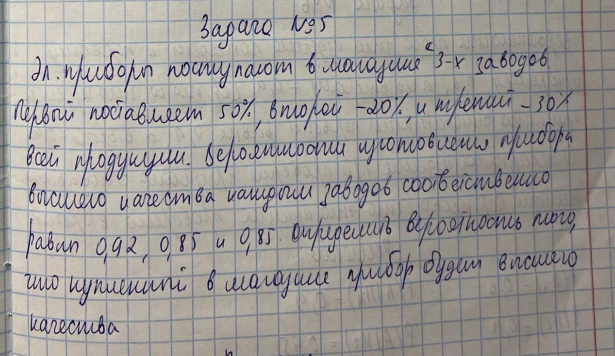 Задача №5
Эл. приборы поступают в магазин с 3-х заводов
Первый поставляет 50%, второй -20%, и третий -30%
всей продукции. Вероятности изготовления прибора
высшего качества каждым заводов соответственно
равны 0,92, 0,85 и 0,85. Определить вероятность того,
что купленный в магазине прибор будет высшего
качества